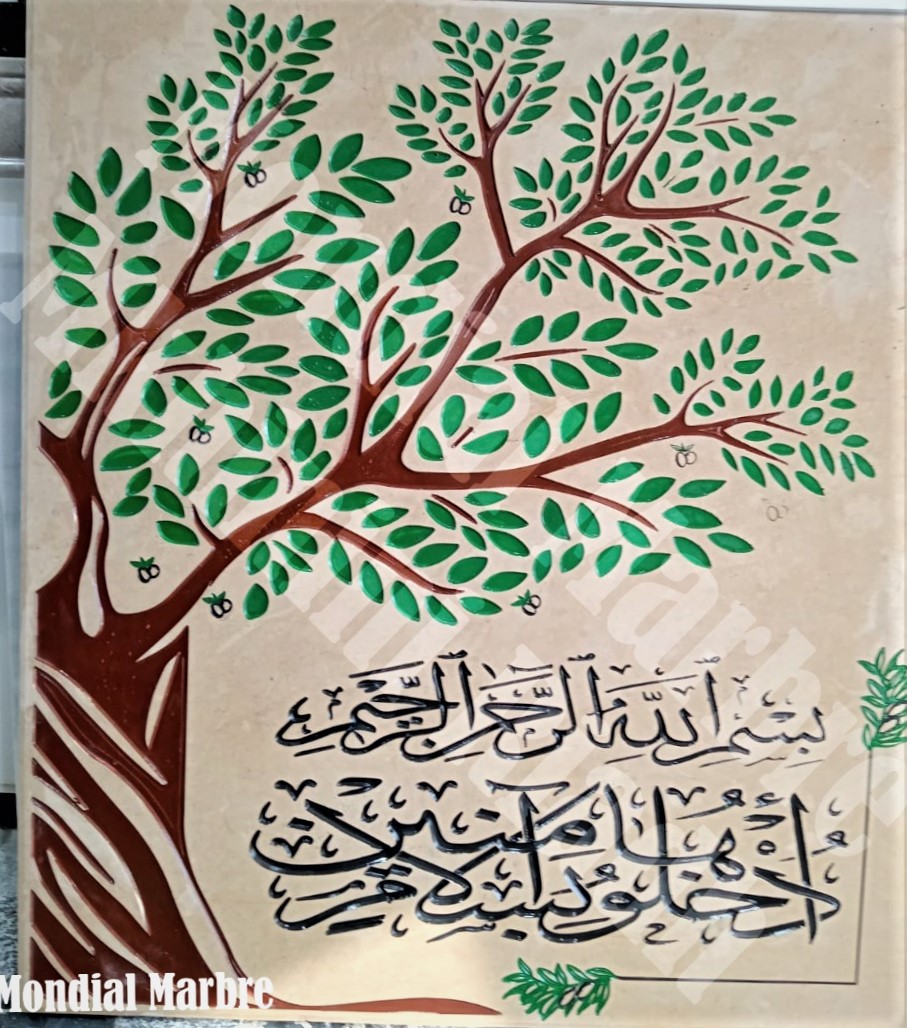 بِسْمِ ٱللَّهِ ٱلرَّحْمَٰنِ ٱلرَّحِيمِ
أُدْخُلُوهَا بِسَلَامٍ آمِنِينَ
Mondial Marbre